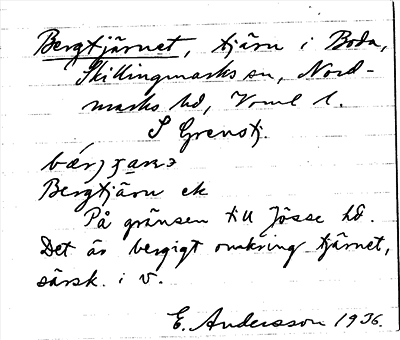 Bergtjärnet, tjärn i Boda,
Skillingmarks sn, Nord-
marks hd, Vrml l.
S Grenstj.
Bergtjärn ek
På gränsen till Jösse hd.
Det är bergigt omkring tjärnet,
särsk. i v.
E. Andersson 1936.